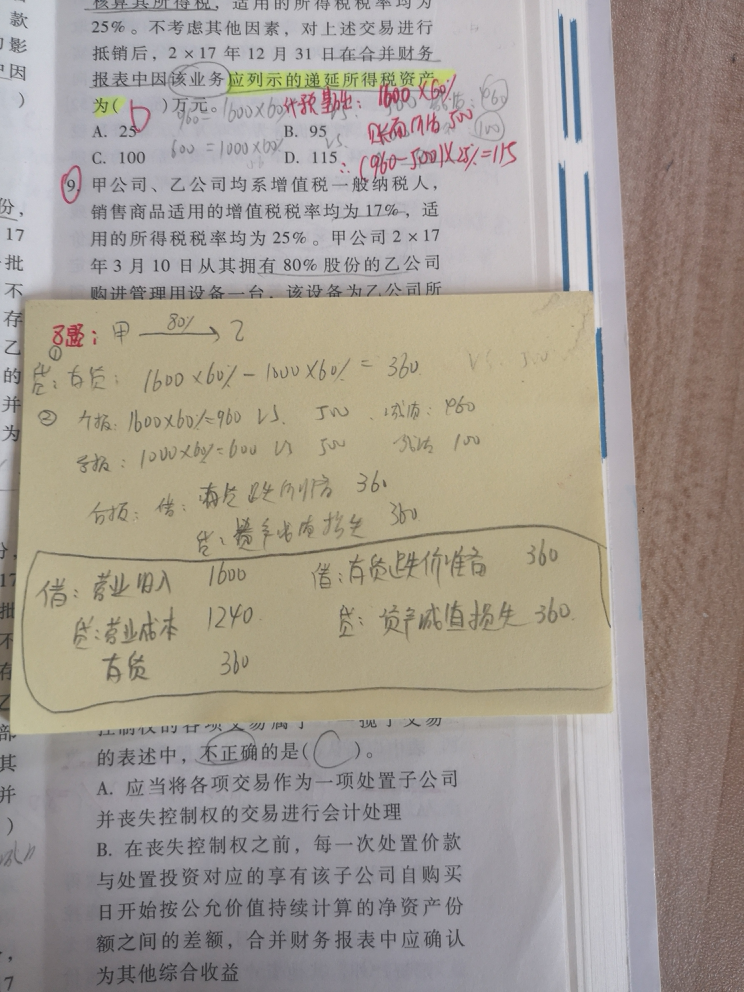 核算其所得税，适用的所得税税率均为
25%。不考虑其他因素，对上述交易进行
抵销后，2×17 年 12 月 31 日在合并财务
报表中因该业务应列示的递延所得税资产
为(  )万元。
1600×60%
460
A. 25
B. 95
账面价值 500
100
960=1600×60%
600=1000×60%
VS.
C. 100
D. 115
∴ (960-500)×25%=115
9. 甲公司、乙公司均系增值税一般纳税人，
销售商品适用的增值税税率均为 17%，适
用的所得税税率均为 25%。甲公司 2×17
年 3 月 10 日从其拥有 80% 股份的乙公司
购进管理用设备一台，该设备为乙公司所
8题: 甲 80% 乙
① 贷: 存货: 1600×60%-1000×60%=360
② 个报: 1600×60%=960 VS. 500 . 减值: 460
1000×60%=600 VS 500 减值 100
合报: 借: 存货跌价准备 360
贷: 资产减值损失 360
借: 营业收入 1600
贷: 营业成本 1240
存货 360
借: 存货跌价准备 360
贷: 资产减值损失 360
控制权的各项交易属于"一揽子交易"
的表述中，不正确的是(  )。
A. 应当将各项交易作为一项处置子公司
并丧失控制权的交易进行会计处理
B. 在丧失控制权之前，每一次处置价款
与处置投资对应的享有该子公司自购买
日开始按公允价值持续计算的净资产份
额之间的差额，合并财务报表中应确认
为其他综合收益